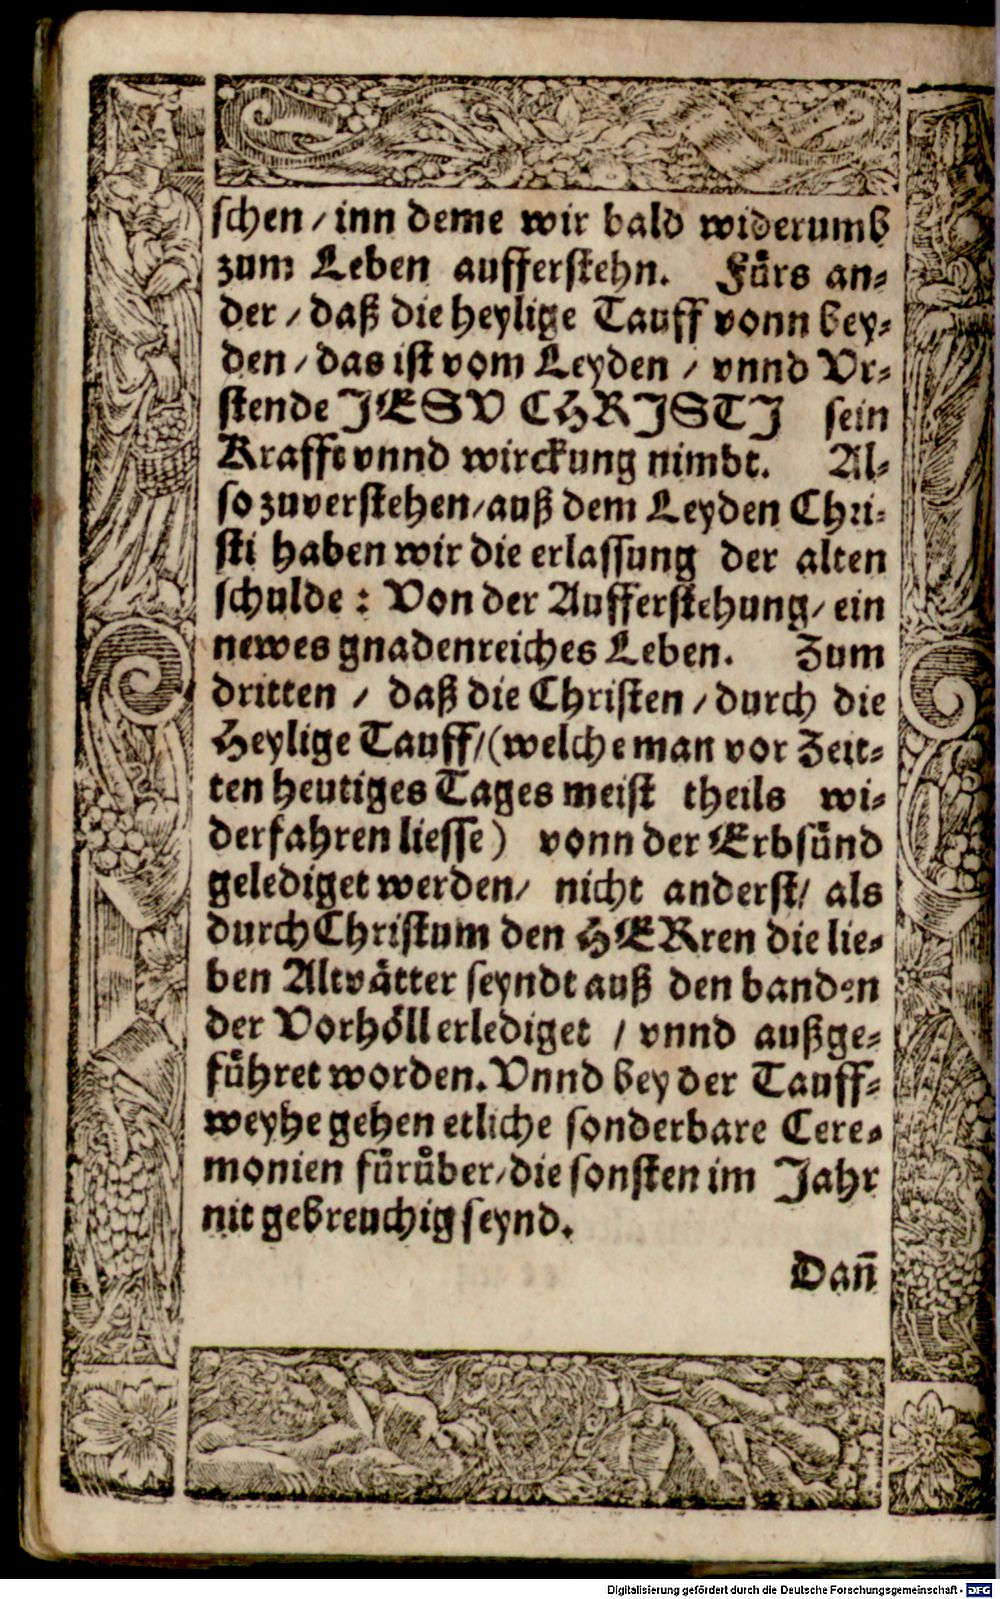 schen / inn deme wir bald widerumb
zum Leben aufferstehn. Fürs an-
der / daß die heylige Tauff vonn bey-
den / das ist vom Leyden / vnnd Vr-
stende JESV CHRISTJ sein
Krafft vnnd wirckung nimbt. Al-
so zuverstehen / auß dem Leyden Chri-
sti haben wir die erlassung der alten
schulde : Von der Aufferstehung / ein
newes gnadenreiches Leben. Zum
dritten / daß die Christen / durch die
Heylige Tauff / (welche man vor Zeit-
ten heutiges Tages meist theils wi-
derfahren liesse) vonn der Erbsünd
gelediget werden / nicht anderst / als
durch Christum den HERren die lie-
ben Altvätter seyndt auß den banden
der Vorhöll erlediget / vnnd außge-
führet worden. Vnnd bey der Tauff-
weyhe gehen etliche sonderbare Cere-
monien fürüber / die sonsten im Jahr
nit gebreuchig seynd.
Dañ
Digitalisierung gefördert durch die Deutsche Forschungsgemeinschaft - DFG